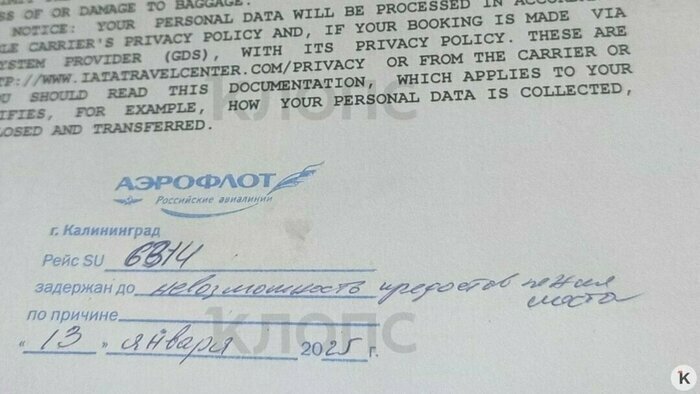 SS OF OR DAMAGE TO BAGGAGE.
NOTICE: YOUR PERSONAL DATA WILL BE PROCESSED IN
LE CARRIER'S PRIVACY POLICY AND, IF YOUR BOOKING IS MADE VIA
YSTEM PROVIDER (GDS), WITH ITS PRIVACY POLICY. THESE ARE
TP://WWW.IATATRAVELCENTER.COM/PRIVACY OR FROM THE CARRIER OR
OU SHOULD READ THIS DOCUMENTATION, WHICH APPLIES TO YOUR
IFIES, FOR EXAMPLE, HOW YOUR PERSONAL DATA IS COLLECTED,
LOSED AND TRANSFERRED.
КЛОПС
АЭРОФЛОТ
Российские авиалинии
г. Калининград
Рейс SU 6314
задержан до невозможность предоставления
места
по причине
КЛОПС
"13" января 2025 г.
K